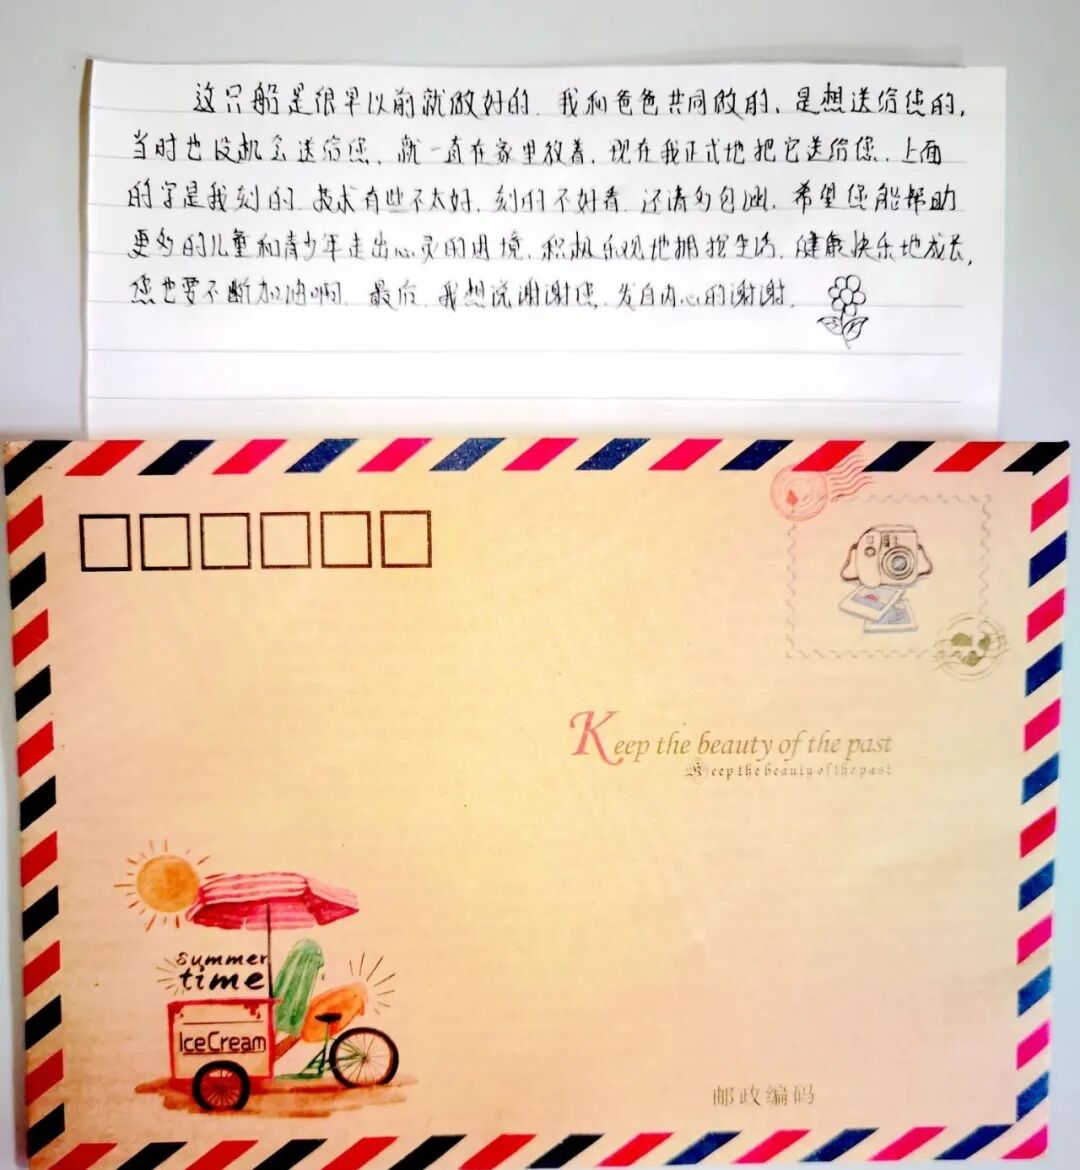 这只船是很早以前就做好的.我和爸爸共同做的,是想送给您的,
当时也没机会送给您,就一直在家里放着,现在我正式地把它送给您.上面
的字是我刻的.技术有些不太好,刻的不好看.还请多包涵.希望您能帮助
更多的儿童和青少年走出心灵的困境,积极乐观地拥抱生活,健康快乐地成长,
您也要不断加油啊.最后,我想说谢谢您,发自内心的谢谢.
Keep the beauty of the past
Keep the beauty of the past
summer
time
IceCream
邮政编码